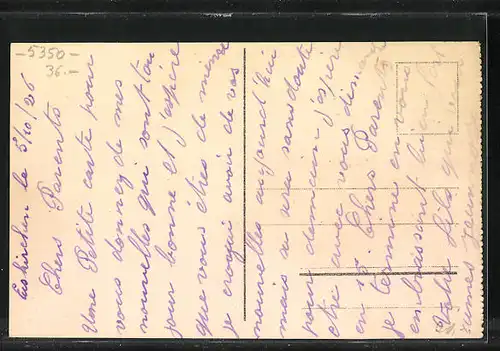 -5350-
36.-
Euskirchen le 5/10/26
Chers Parents
Une Petite carte pour
vous donnez de mes
nouvelles qui sont tou
jour bonne et j'espère
que vous êtes de meme
je croyai avoir de vos
nouvelles aujourd'hui
mais se sera sans doute
pour demain j'espère
etre avec vous dimanche
en 15. Chers Parents
je termine en vous
embrassant bien fort
Votre fils qui